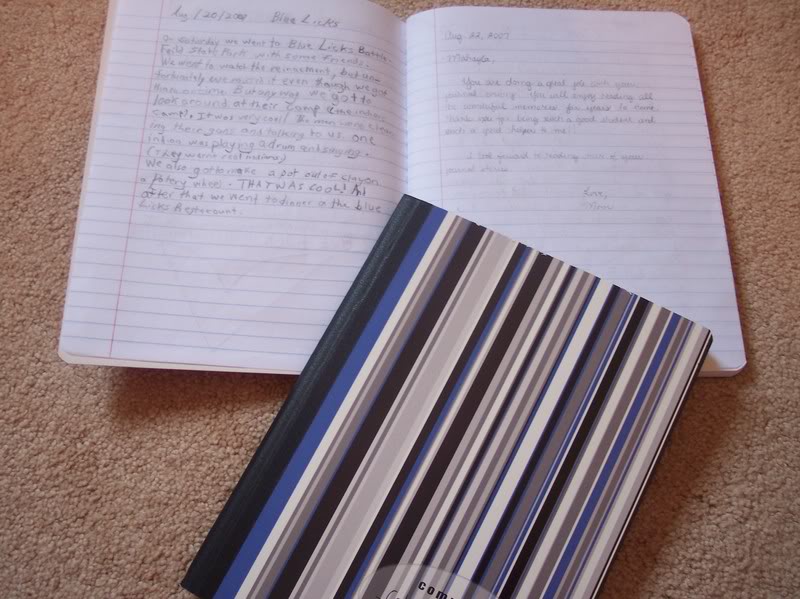 Aug/20/2007 Blue Licks
On saturday we went to Blue Licks Battle
Feild State Park with some friends.
We went to watch the reinactment, but
even though we got
we got to
look around at their camp
It was very cool! The men were
ing there guns and talking to us. one
indian was playing a drum and singing.
(They weren't real indians)
We also got to make a pot out of clay on
a potery wheel. THAT WAS COOL! And
after that we went to dinner a the blue
Licks Resterount.
Aug. 22, 2007
You are doing a great job with your
journal writing. You will enjoy reading all
the wonderful memories for years to come.
Thank you for being such a good student and
such a good helper to me!
I look forward to reading more of your
journal stories.
Love,
Mom
com